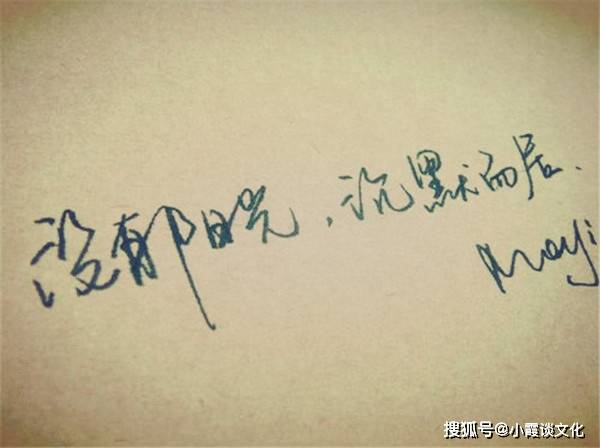 没有阳光，沉默而居.
搜狐号@小霞谈文化